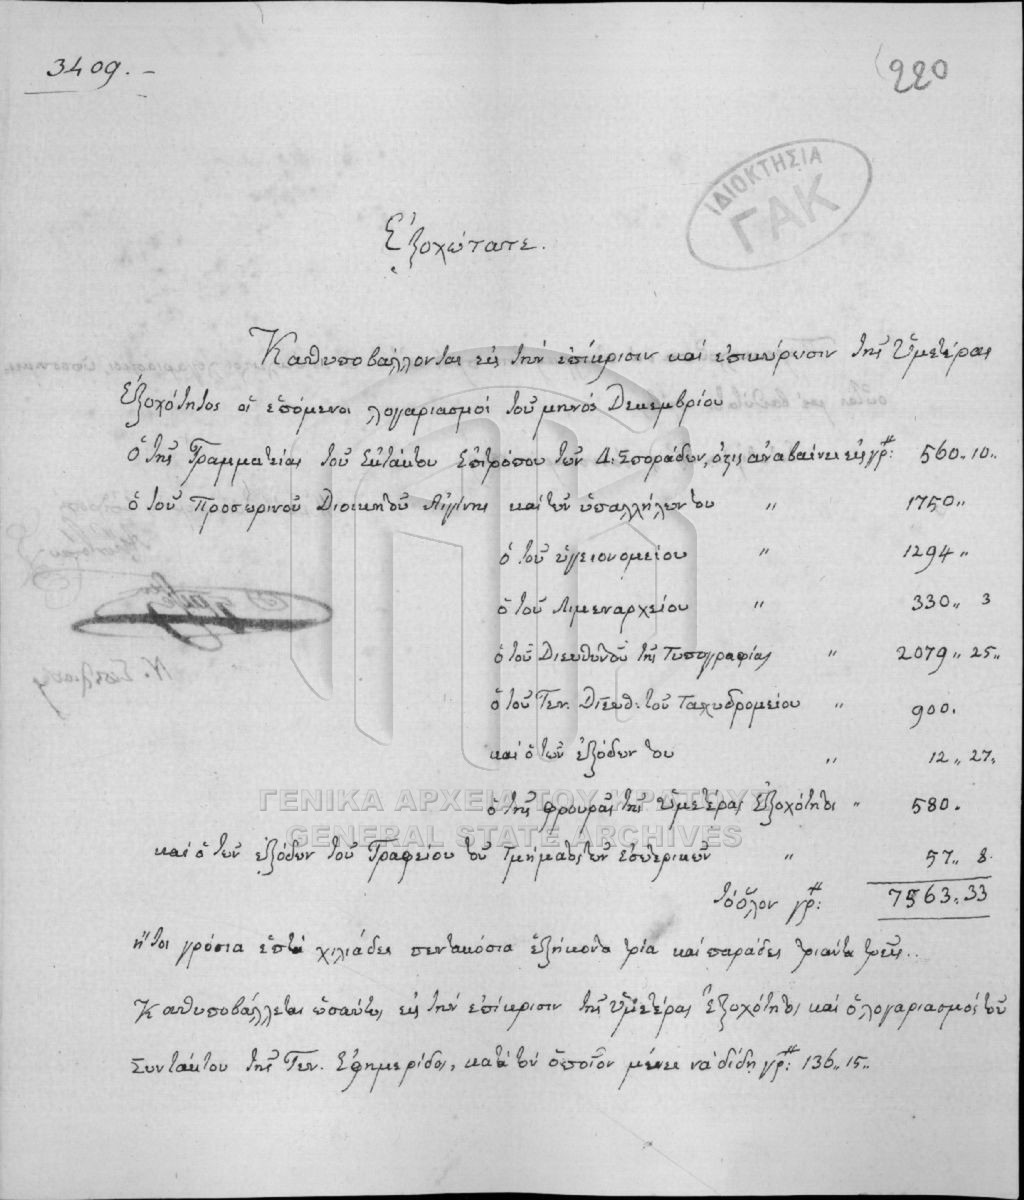 3409.-
220
ΙΔΙΟΚΤΗΣΙΑ
ΓΑΚ
Ἐξοχώτατε.
Καθυποβάλλονται εἰς τὴν ἐπίκρισιν καὶ ἐπικύρωσιν τῆς Ὑμετέρας
Ἐξοχότητος οἱ ἑπόμενοι λογαριασμοὶ τοῦ μηνὸς Δεκεμβρίου
Ὁ τῆς Γραμματείας τοῦ Ἐκτάκτου Ἐπιτρόπου τῶν Δ. Σποράδων, ὅστις ἀναβαίνει εἰς γρ: 560.. 10..
ὁ τοῦ Προσωρινοῦ Διοικητοῦ Αἰγίνης καὶ τῶν ὑπαλλήλων του " 1750..
ὁ τοῦ ὑγειονομείου " 1294..
ὁ τοῦ Λιμεναρχείου " 330.. 3
ὁ τοῦ Διευθυντοῦ τῆς Τυπογραφίας " 2079.. 25..
ὁ τοῦ Γεν. Διευθ. τοῦ Ταχυδρομείου " 900.
καὶ ὁ τῶν ἐξόδων του " 12.. 27..
ὁ τῆς φρουρᾶς τῆς Ὑμετέρας Ἐξοχότητος " 580.
ΓΕΝΙΚΑ ΑΡΧΕΙΑ ΤΟΥ ΚΡΑΤΟΥΣ
GENERAL STATE ARCHIVES
καὶ ὁ τῶν ἐξόδων τοῦ Γραφείου τοῦ Τμήματος τῶν Ἐσωτερικῶν " 57.. 8.
τὸ ὅλον γρ: 7563.. 33
ἤτοι γρόσια ἑπτὰ χιλιάδες πεντακόσια ἑξήκοντα τρία καὶ παράδες τριάντα τρεῖς..
Καθυποβάλλεται ὡσαύτως εἰς τὴν ἐπίκρισιν τῆς Ὑμετέρας Ἐξοχότητος καὶ ὁ λογαριασμὸς τοῦ
Συντάκτου τῆς Γεν. Ἐφημερίδος, κατὰ τὸν ὁποῖον μένει νὰ δίδῃ γρ: 136.. 15..